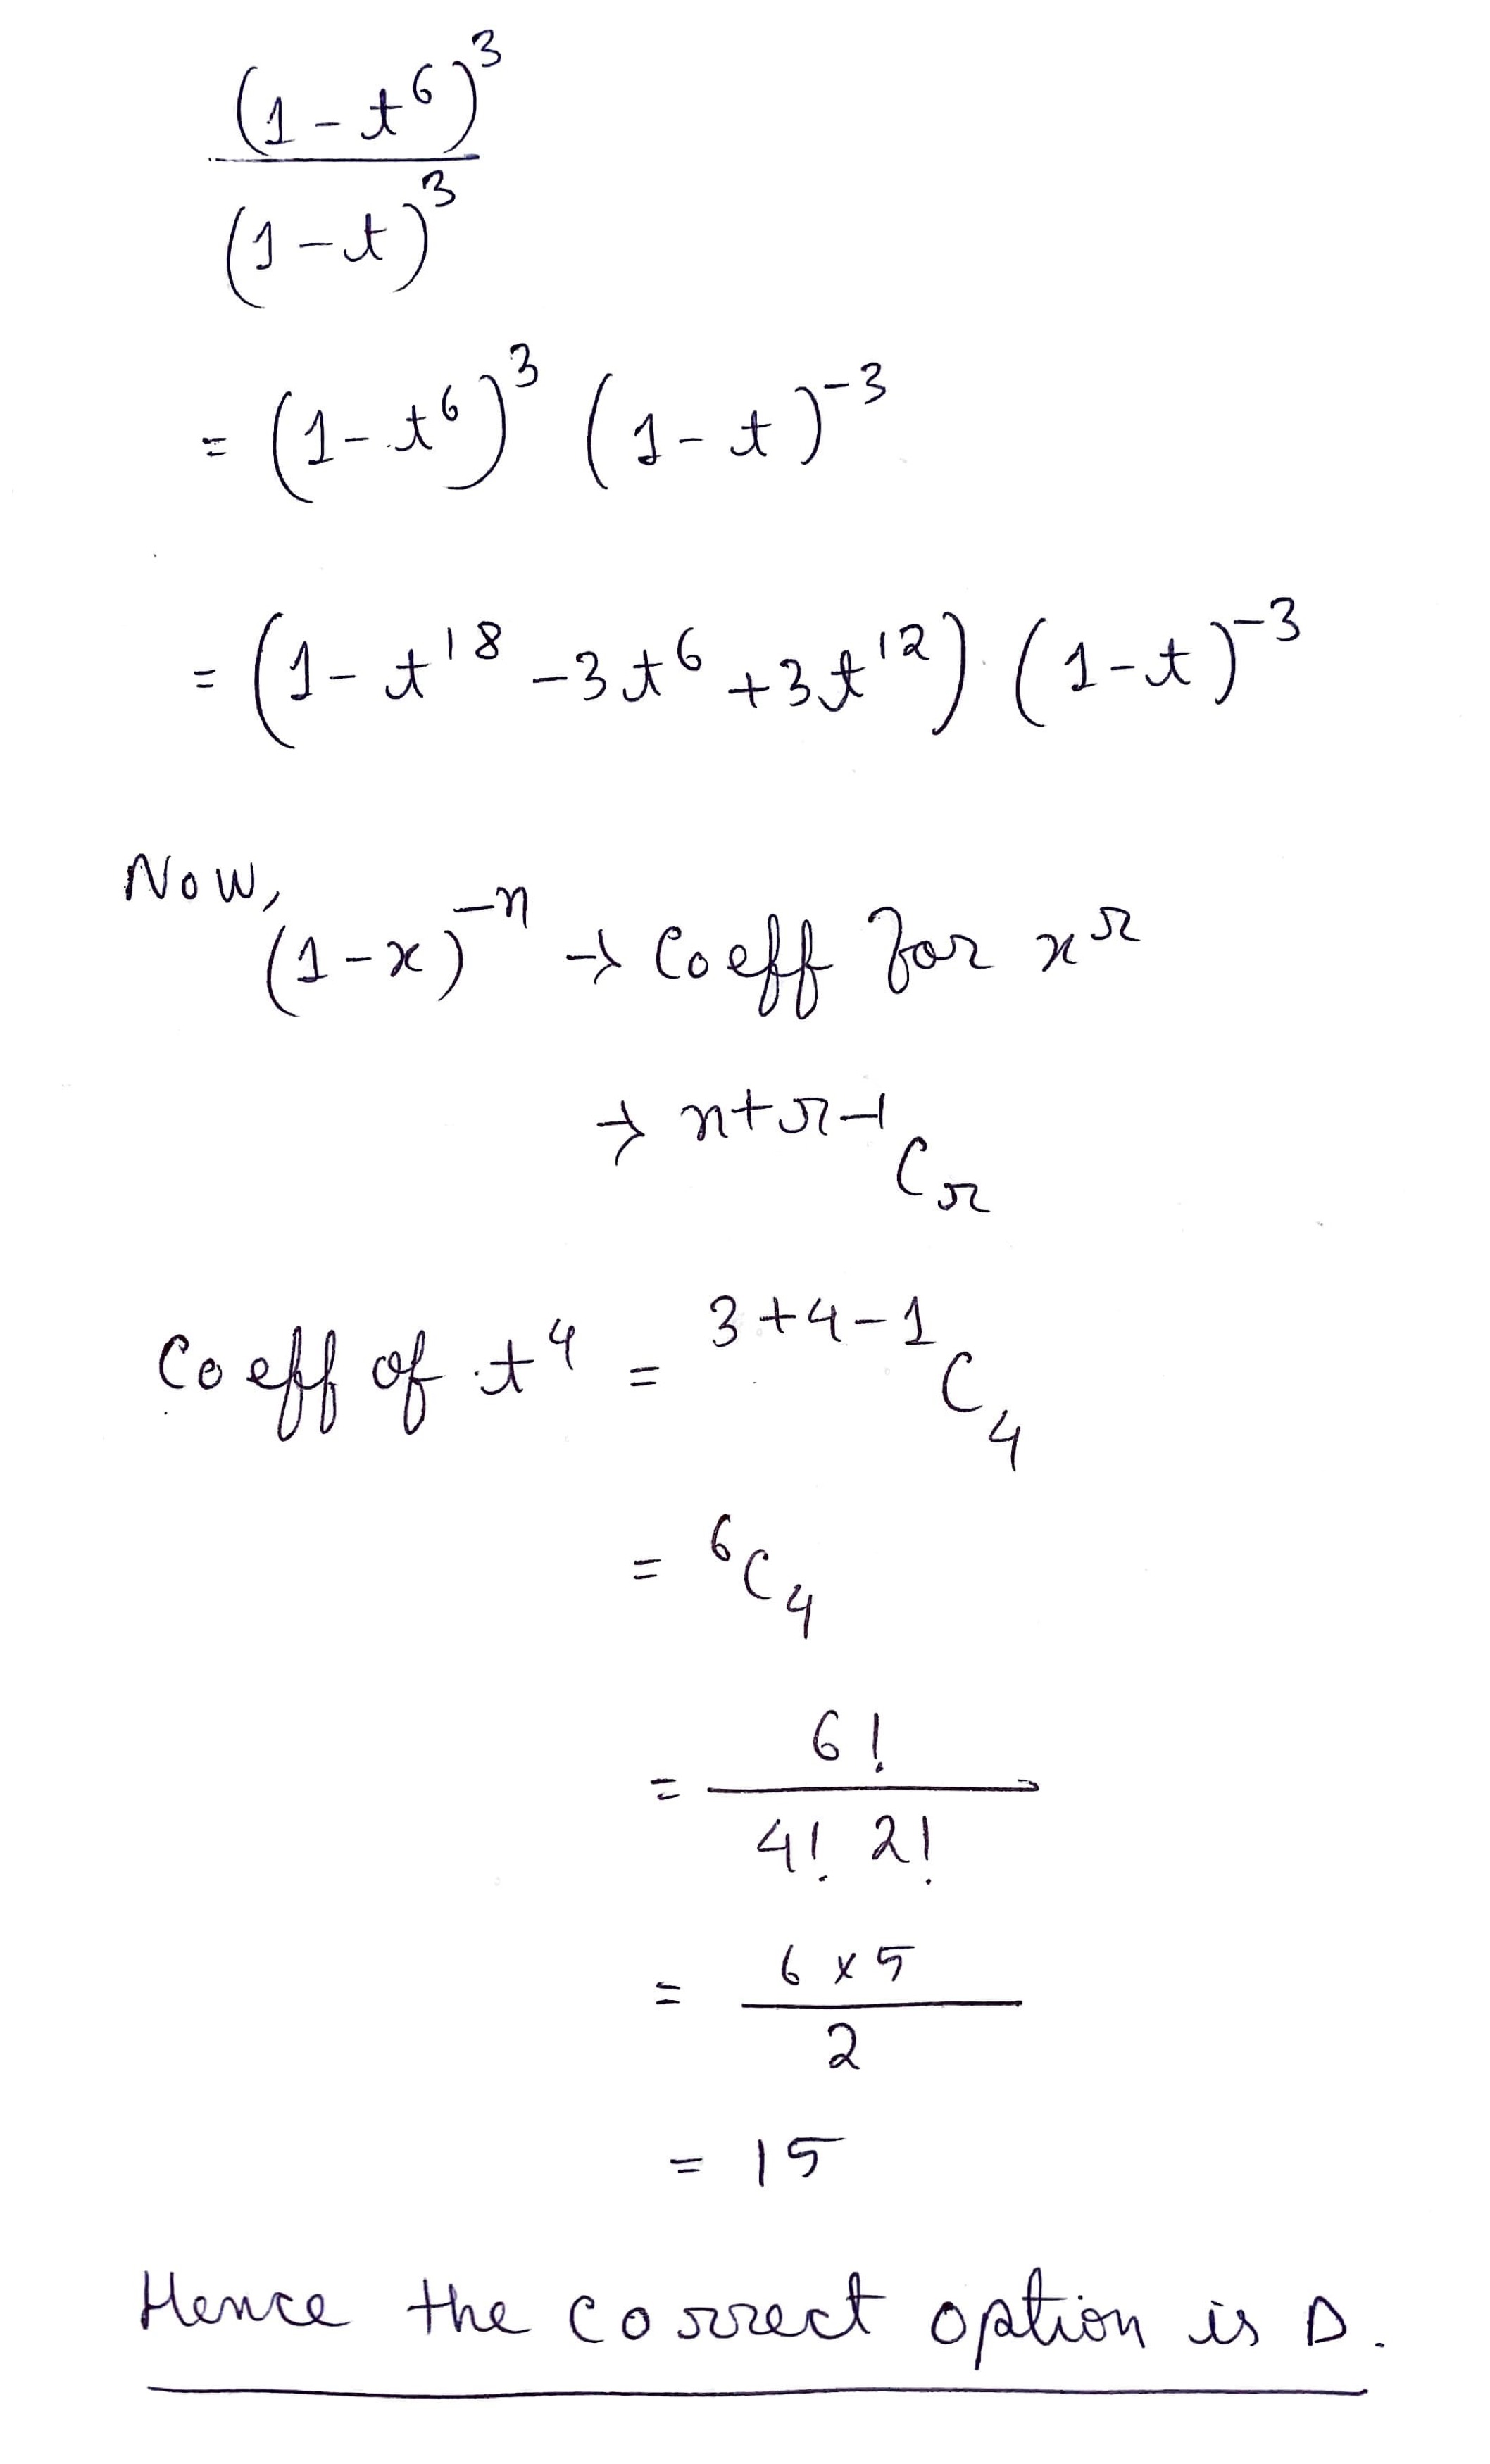 (1-t⁶)³
(1-t)³
= (1-t⁶)³ (1-t)⁻³
= (1-t¹⁸-3t⁶+3t¹²) (1-t)⁻³
Now,
(1-x)⁻ⁿ → Coeff for xʳ
→ n+r-1Cr
Coeff of t⁴ = 3+4-1C₄
= ⁶C₄
= 6!
4! 2!
= 6×5
2
= 15
Hence the correct option is D.